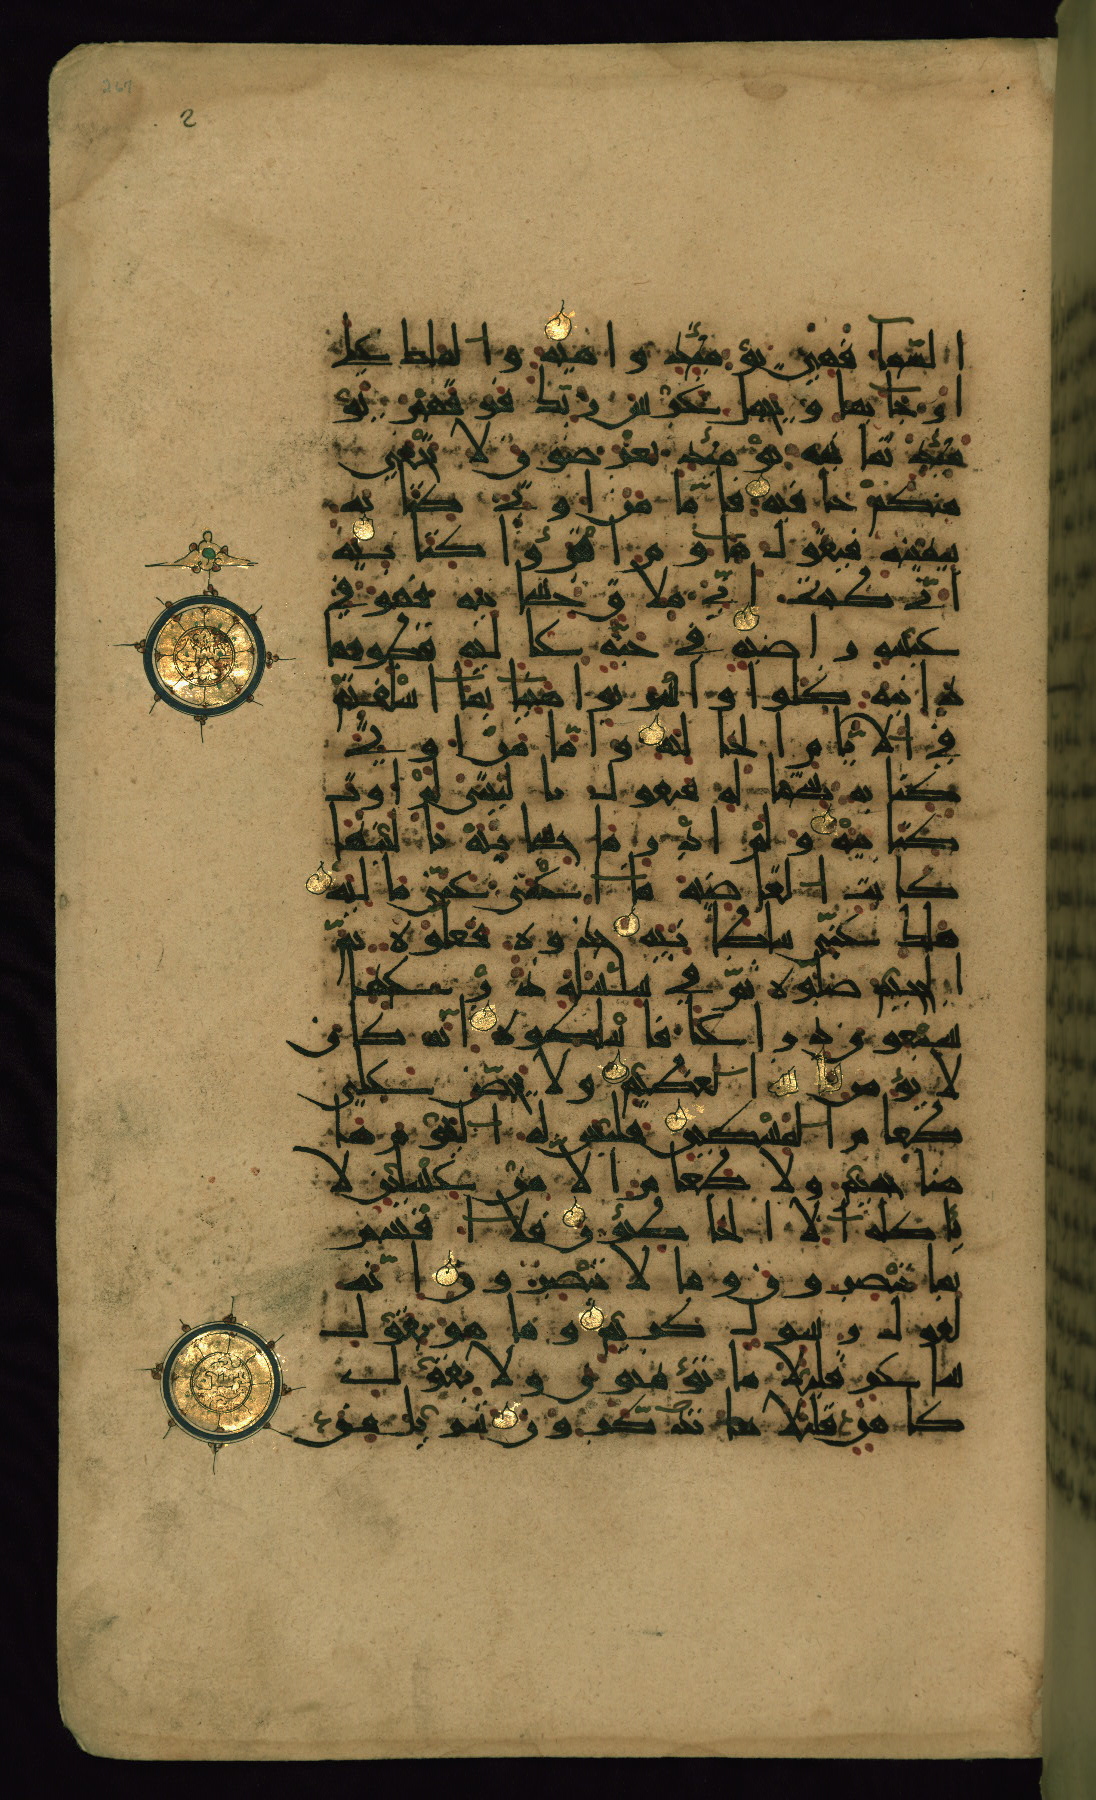 267
2
السما فهي يومئذ واهيه والملك علي
ارجايها ويحمل عرش ربك فوقهم يو
مئذ ثمانيه يومئذ تعرضون لا تخفي
منكم خافيه فاما من اوتي كتابه
بيمينه فيقول هاوم اقرؤا كتابيه
اني ظننت اني ملاق حسابيه فهو في
عيشه راضيه في جنه عاليه قطوفها
دانيه كلوا واشربوا هنيا بما اسلفتم
في الايام الخاليه واما من اوتي
كتابه بشماله فيقول يا ليتني لم اوت
كتابيه ولم ادر ما حسابيه يا ليتها
كانت القاضيه ما اغني عني ماليه
هلك عني سلطانيه خذوه فغلوه ثم
الجحيم صلوه ثم في سلسله ذرعها
سبعون ذراعا فاسلكوه انه كان
لا يؤمن بالله العظيم ولا يحض علي
طعام المسكين فليس له اليوم ها
هنا حميم ولا طعام الا من غسلين لا
ياكله الا الخاطؤن فلا اقسم
بما تبصرون وما لا تبصرون انه
لقول رسول كريم وما هو بقول
شاعر قليلا ما تؤمنون ولا بقول
كاهن قليلا ما تذكرون تنزيل من